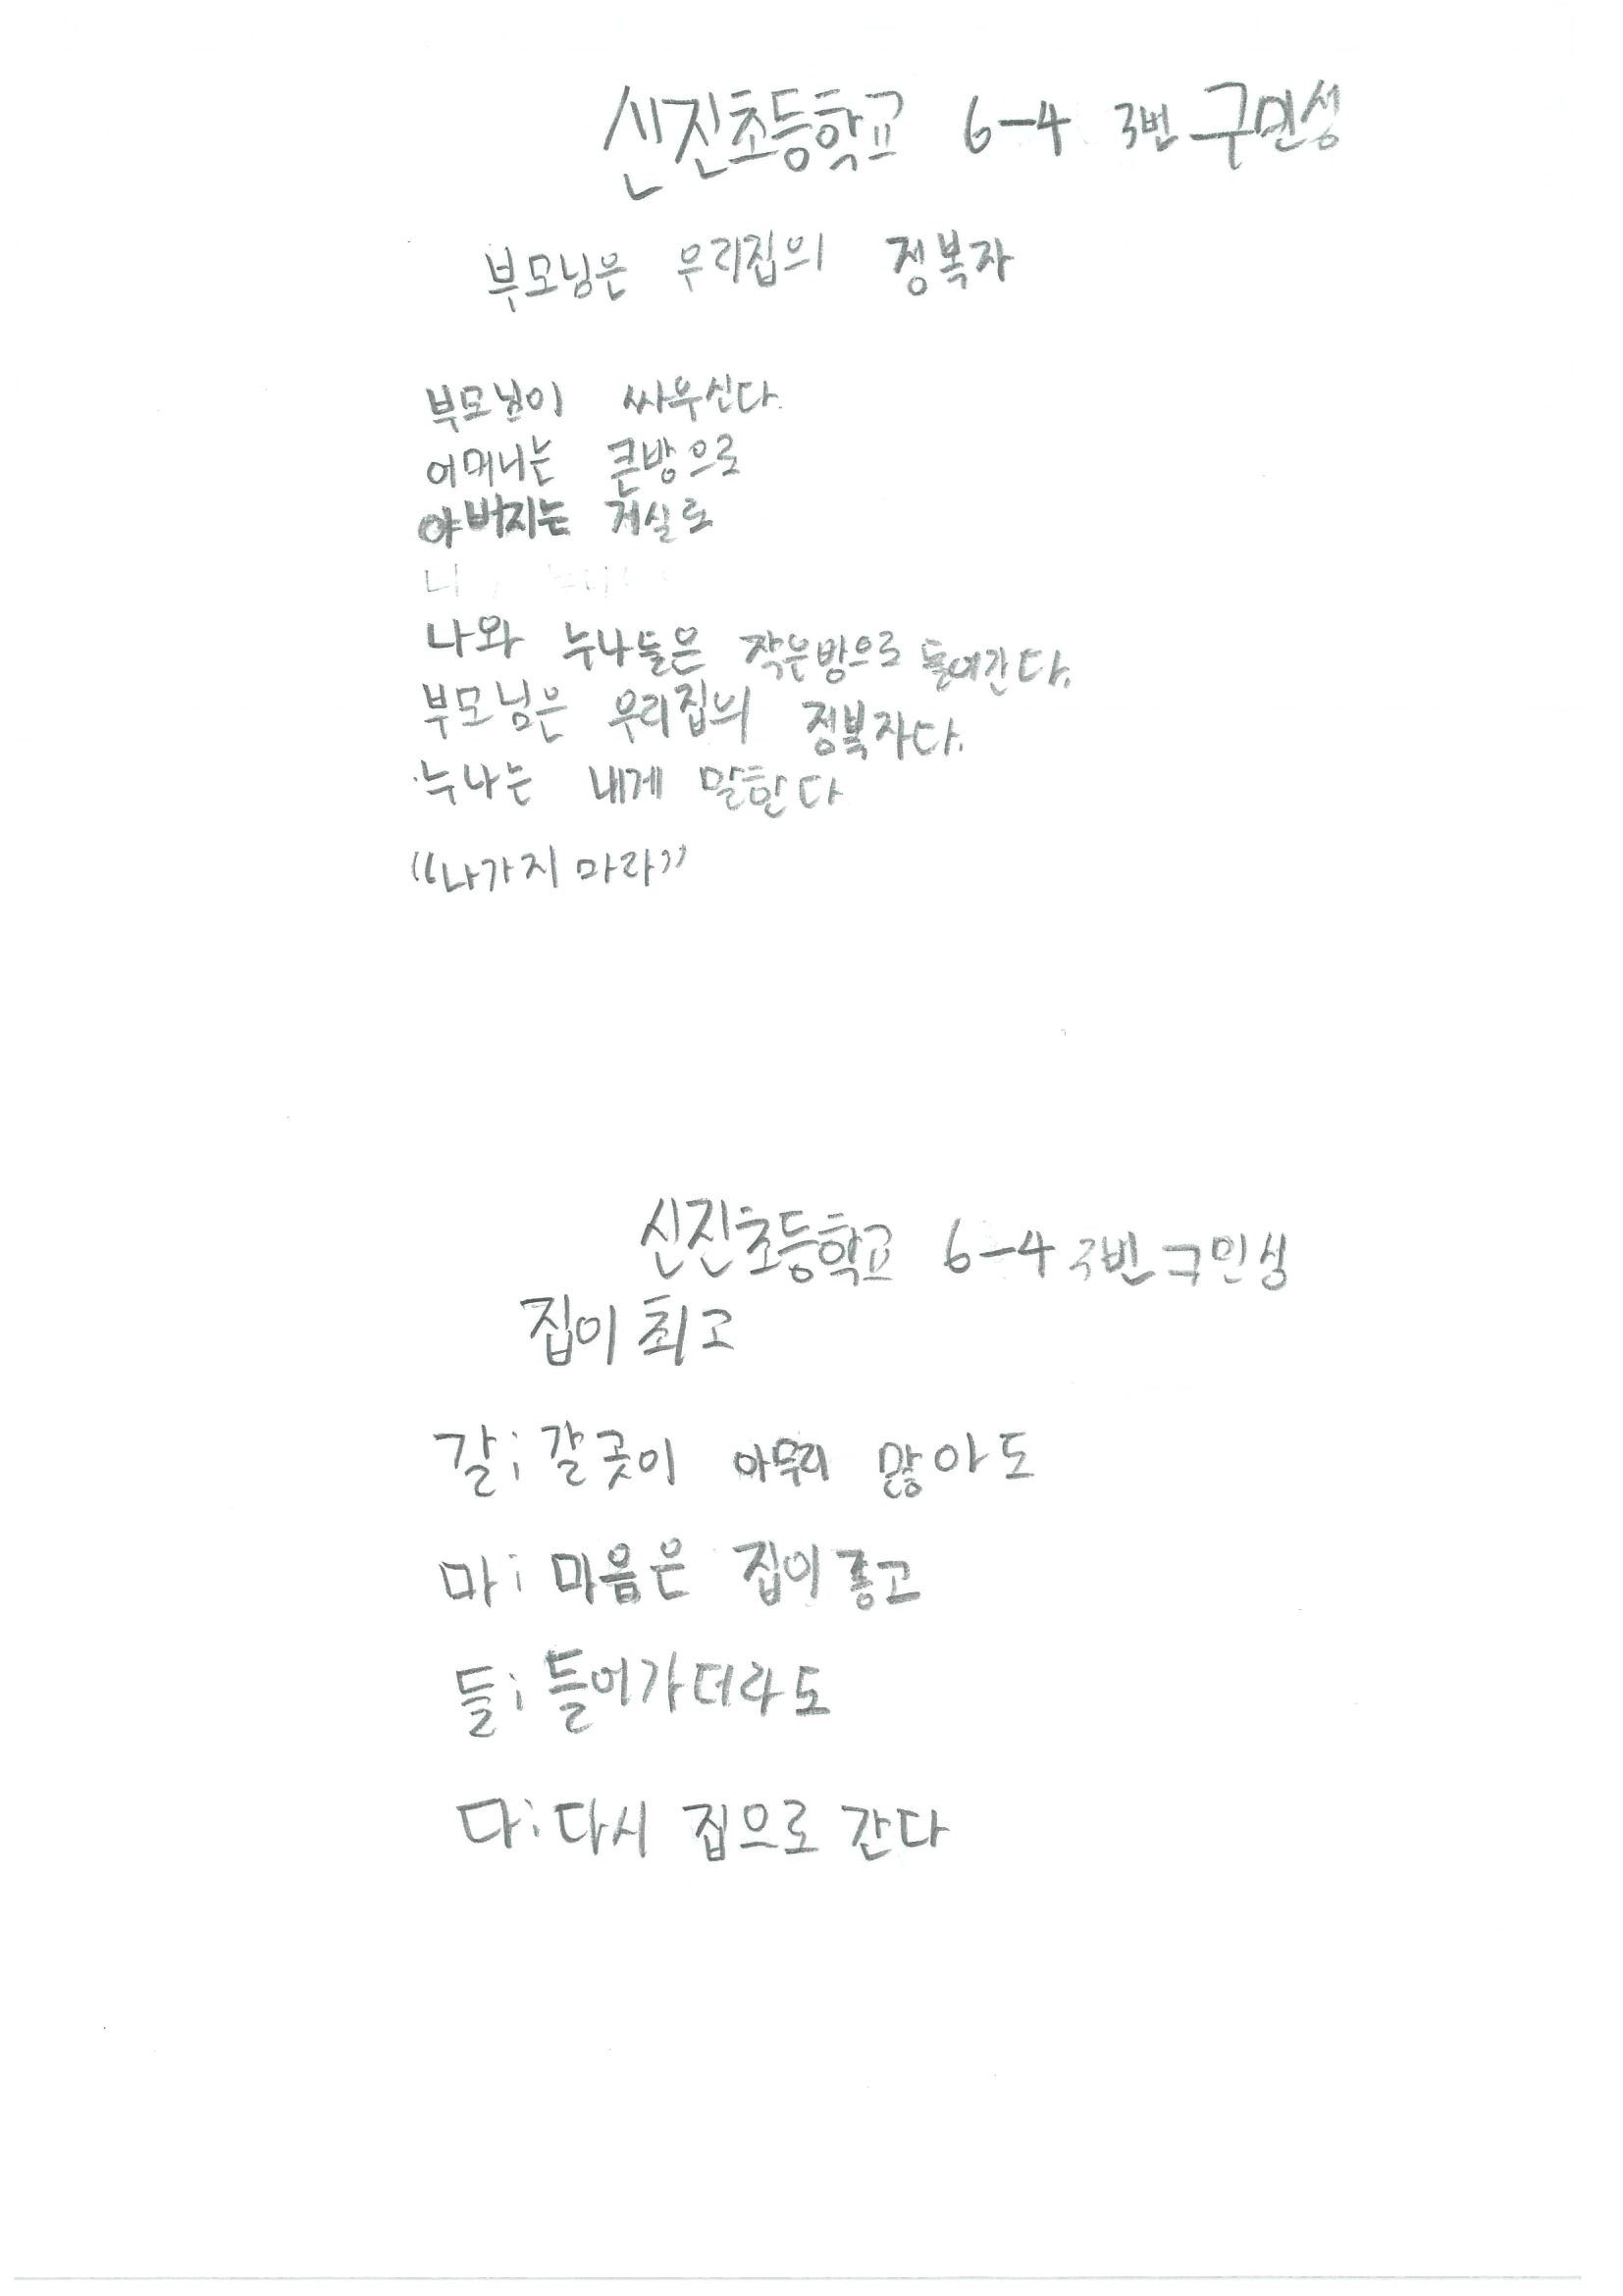 신진초등학교 6-4 3번 구민성
부모님은 우리집의 정복자
부모님이 싸우신다.
어머니는 큰방으로
아버지는 거실로
나와 누나들은 작은방으로 들어간다.
부모님은 우리집의 정복자다.
누나는 내게 말한다
"나가지 마라"
신진초등학교 6-4 3번 구민성
집이 최고
갈; 갈곳이 아무리 많아도
마; 마음은 집이 좋고
들; 들어가더라도
다; 다시 집으로 간다